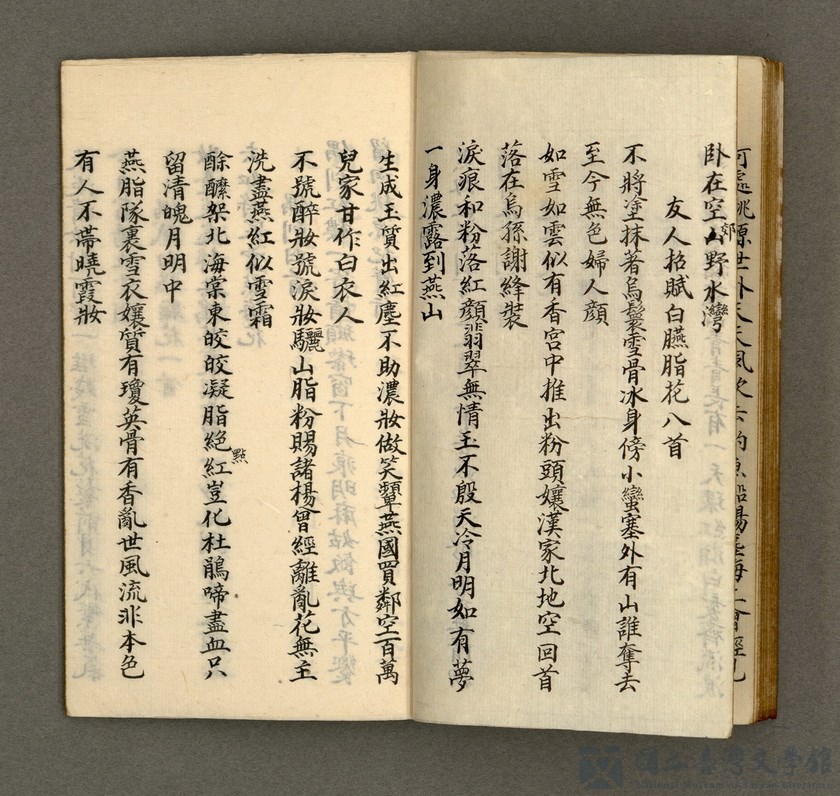 臥在空山野水灣
郊
友人招賦白臙脂花八首
不將塗抹著烏鬟雪骨冰身傍小蠻塞外有山誰奪去
至今無色婦人顔
如雪如雲似有香宮中推出粉頭孃漢家北地空回首
落在烏孫謝絳裝
淚痕和粉落紅顔翡翠無情玉不殷天冷月明如有夢
一身濃露到燕山
生成玉質出紅塵不助濃妝做笑顰燕國買鄰空百萬
兒家甘作白衣人
不號醉妝號淚妝驪山脂粉賜諸楊曾經離亂花無主
洗盡燕紅似雪霜
酴醾架北海棠東皎皎凝脂絕紅豈化杜鵑啼盡血只
點
留清魄月明中
燕脂隊裏雪衣孃質有瓊英骨有香亂世風流非本色
有人不帶曉霞妝
國立臺灣文學館
National Museum of Taiwan Literature